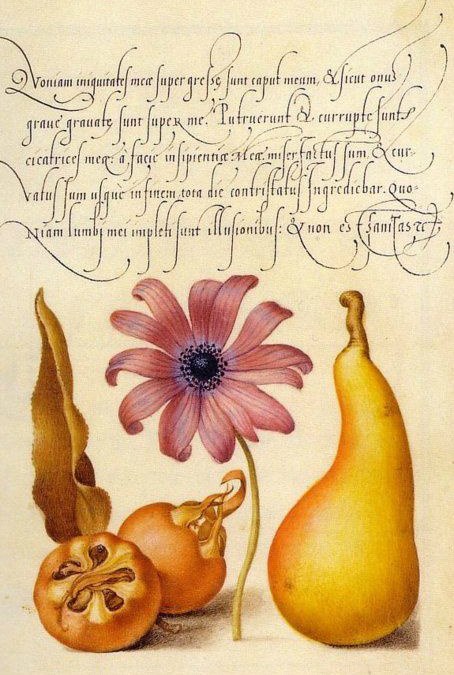 Quoniam iniquitates meæ supergressę sunt caput meum, & sicut onus
graue grauatę sunt super me. Putruerunt & corruptę sunt
cicatrices meæ, a facie insipientiæ meæ. miser factus sum, & cur-
uatus sum usque in finem, tota die contristatus Ingrediebar. Quo-
niam lumbi mei impleti sunt illusionibus: & non est sanitas